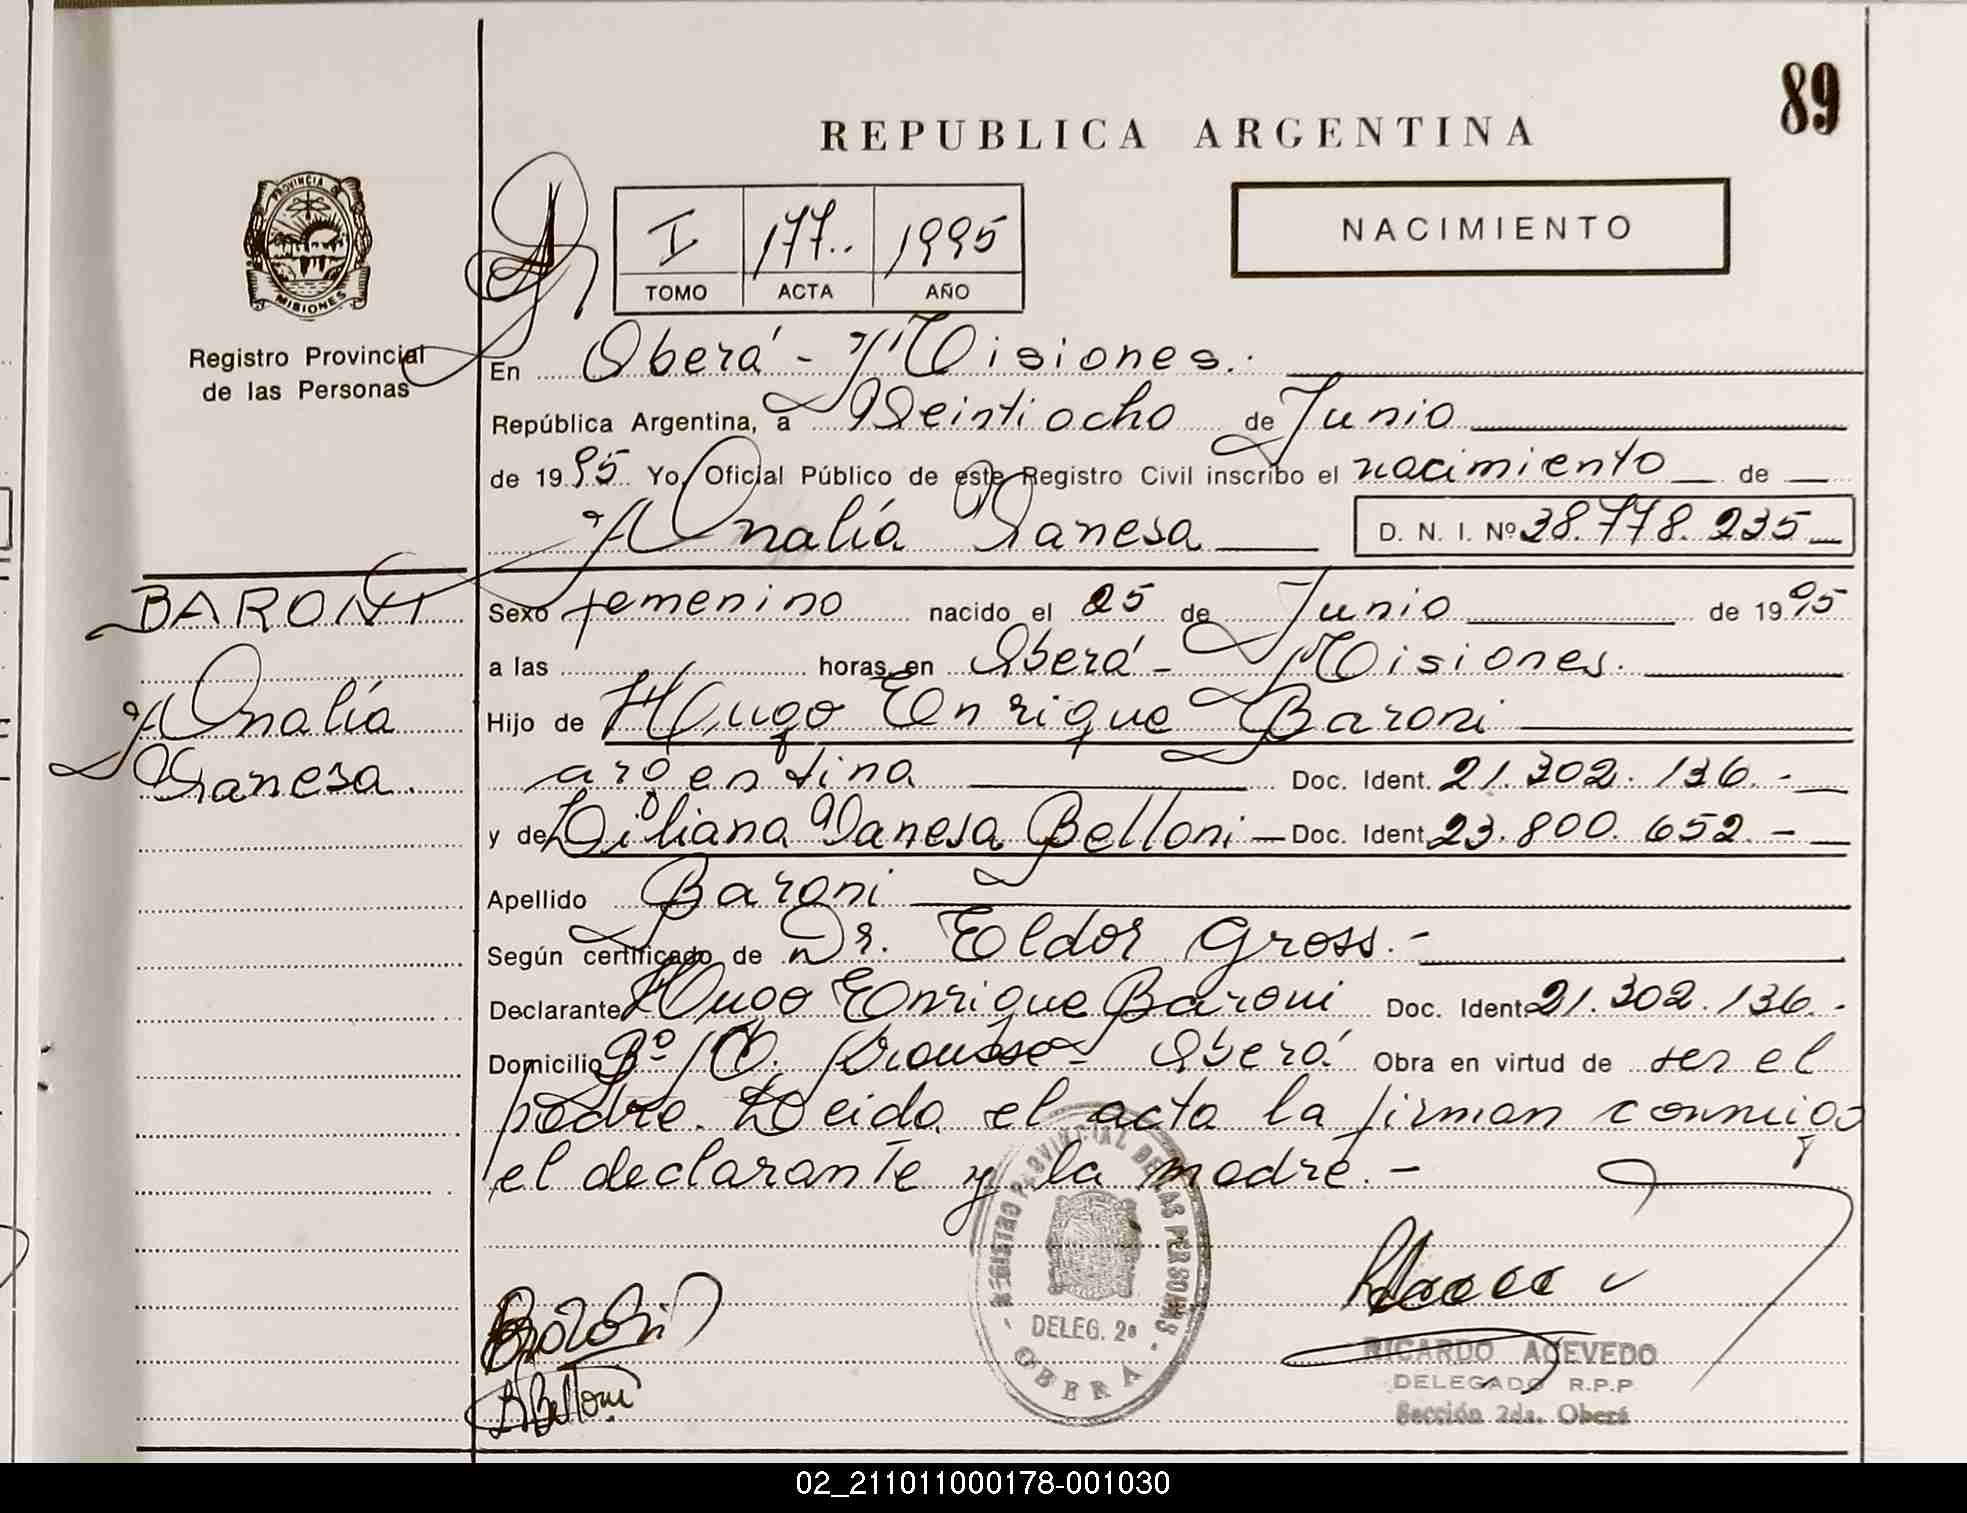 89
REPUBLICA ARGENTINA
PROVINCIA DE
MISIONES
Registro Provincial
de las Personas
I 177.. 1995
TOMO ACTA AÑO
NACIMIENTO
En Oberá - Misiones.
República Argentina, a Veintiocho de Junio
de 1995 Yo, Oficial Público de este Registro Civil inscribo el nacimiento de
Analía Vanesa D. N. I. Nº 38.778.235
BARONI
Analía
Vanesa.
Sexo femenino nacido el 25 de Junio de 1995
a las horas en Oberá - Misiones.
Hijo de Hugo Enrique Baroni
argentina Doc. Ident. 21.302.136.-
y de Liliana Vanesa Belloni - Doc. Ident. 23.800.652.-
Apellido Baroni
Según certificado de Dr. Eldor Gross.-
Declarante Hugo Enrique Baroni Doc. Ident. 21.302.136.-
Domicilio Bº Oberá Obra en virtud de ser el
padre. Leida el acta la firman conmigo
el declarante y la madre.-
REGISTRO PROVINCIAL DE LAS PERSONAS
DELEG. 2ª
- OBERA -
Baroni
Belloni
RICARDO ACEVEDO
DELEGADO R.P.P
Sección 2da. Oberá
02_211011000178-001030